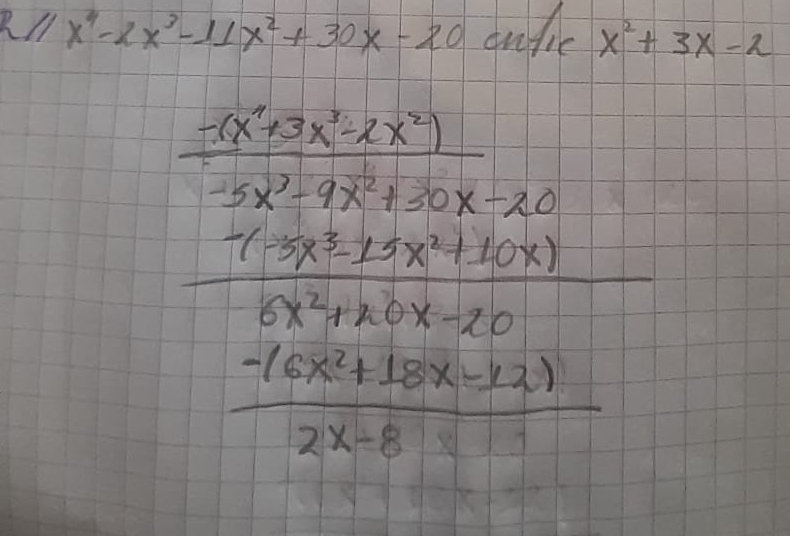 2// x⁴-2x³-11x²+30x-20 entre x²+3x-2
-(x⁴+3x³-2x²)
-5x³-9x²+30x-20
-(-5x³-15x²+10x)
6x²+20x-20
-(6x²+18x-12)
2x-8